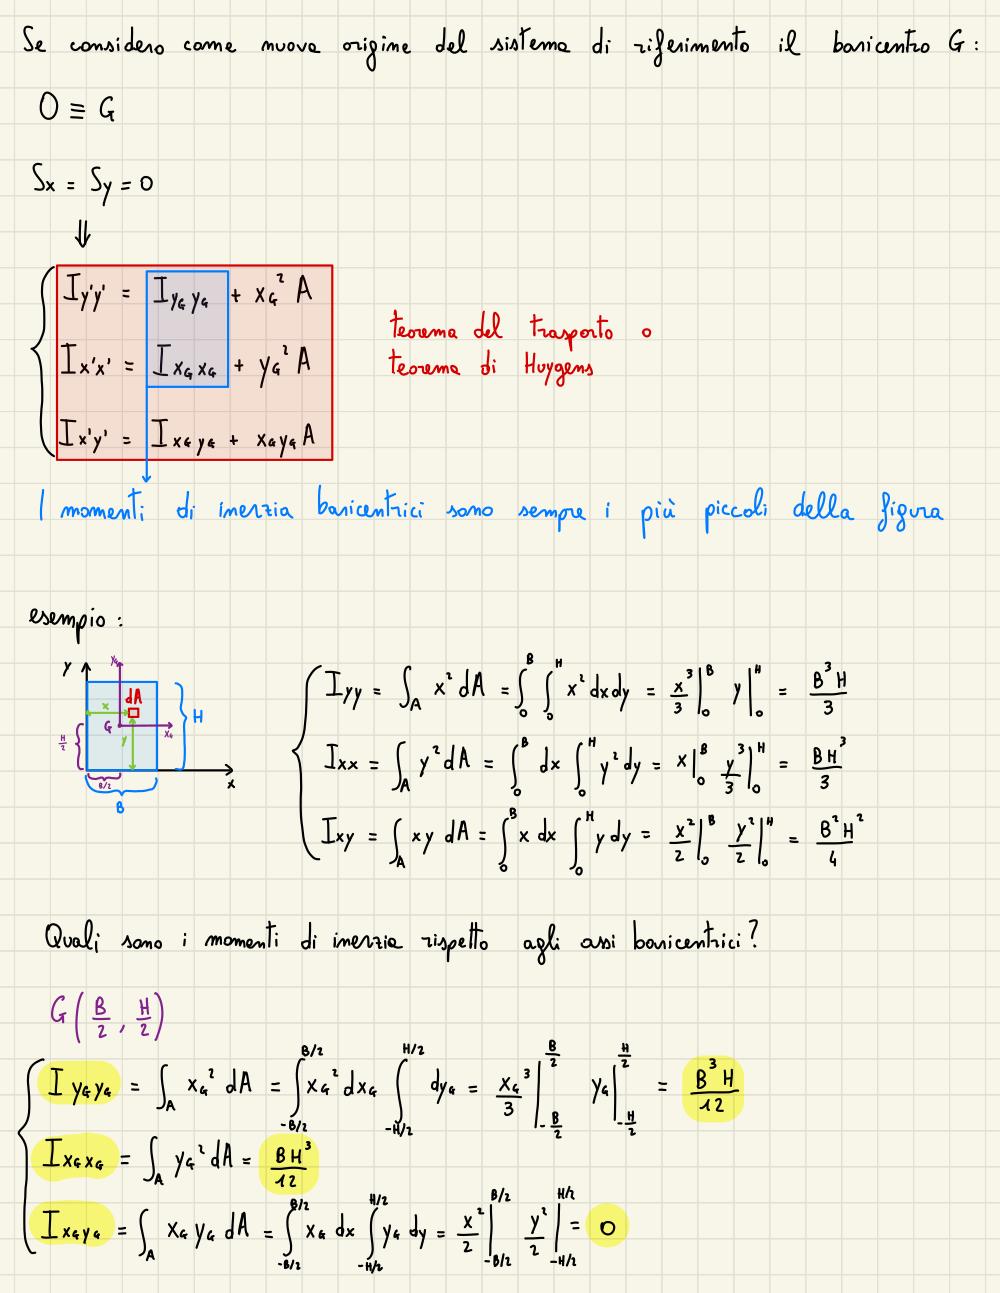 Se considero come nuova origine del sistema di riferimento il baricentro G:
O ≡ G
Sx = Sy = 0
⇓
Iy'y' = IyGyG + xG² A
Ix'x' = IxGxG + yG² A
Ix'y' = IxGyG + xGyG A
teorema del trasporto o
teorema di Huygens
I momenti di inerzia baricentrici sono sempre i più piccoli della figura
esempio:
y yG
dA
x
G xG
y
H
H/2
B/2
x
B
Iyy = ∫A x² dA = ∫₀ᴮ ∫₀ᴴ x² dx dy = x³/3 |₀ᴮ y |₀ᴴ = B³H/3
Ixx = ∫A y² dA = ∫₀ᴮ dx ∫₀ᴴ y² dy = x |₀ᴮ y³/3 |₀ᴴ = BH³/3
Ixy = ∫A xy dA = ∫₀ᴮ x dx ∫₀ᴴ y dy = x²/2 |₀ᴮ y²/2 |₀ᴴ = B²H²/4
Quali sono i momenti di inerzia rispetto agli assi baricentrici?
G(B/2, H/2)
IyGyG = ∫A xG² dA = ∫_{-B/2}^{B/2} xG² dxG ∫_{-H/2}^{H/2} dyG = xG³/3 |_{-B/2}^{B/2} yG |_{-H/2}^{H/2} = B³H/12
IxGxG = ∫A yG² dA = BH³/12
IxGyG = ∫A xG yG dA = ∫_{-B/2}^{B/2} xG dx ∫_{-H/2}^{H/2} yG dy = x²/2 |_{-B/2}^{B/2} y²/2 |_{-H/2}^{H/2} = 0